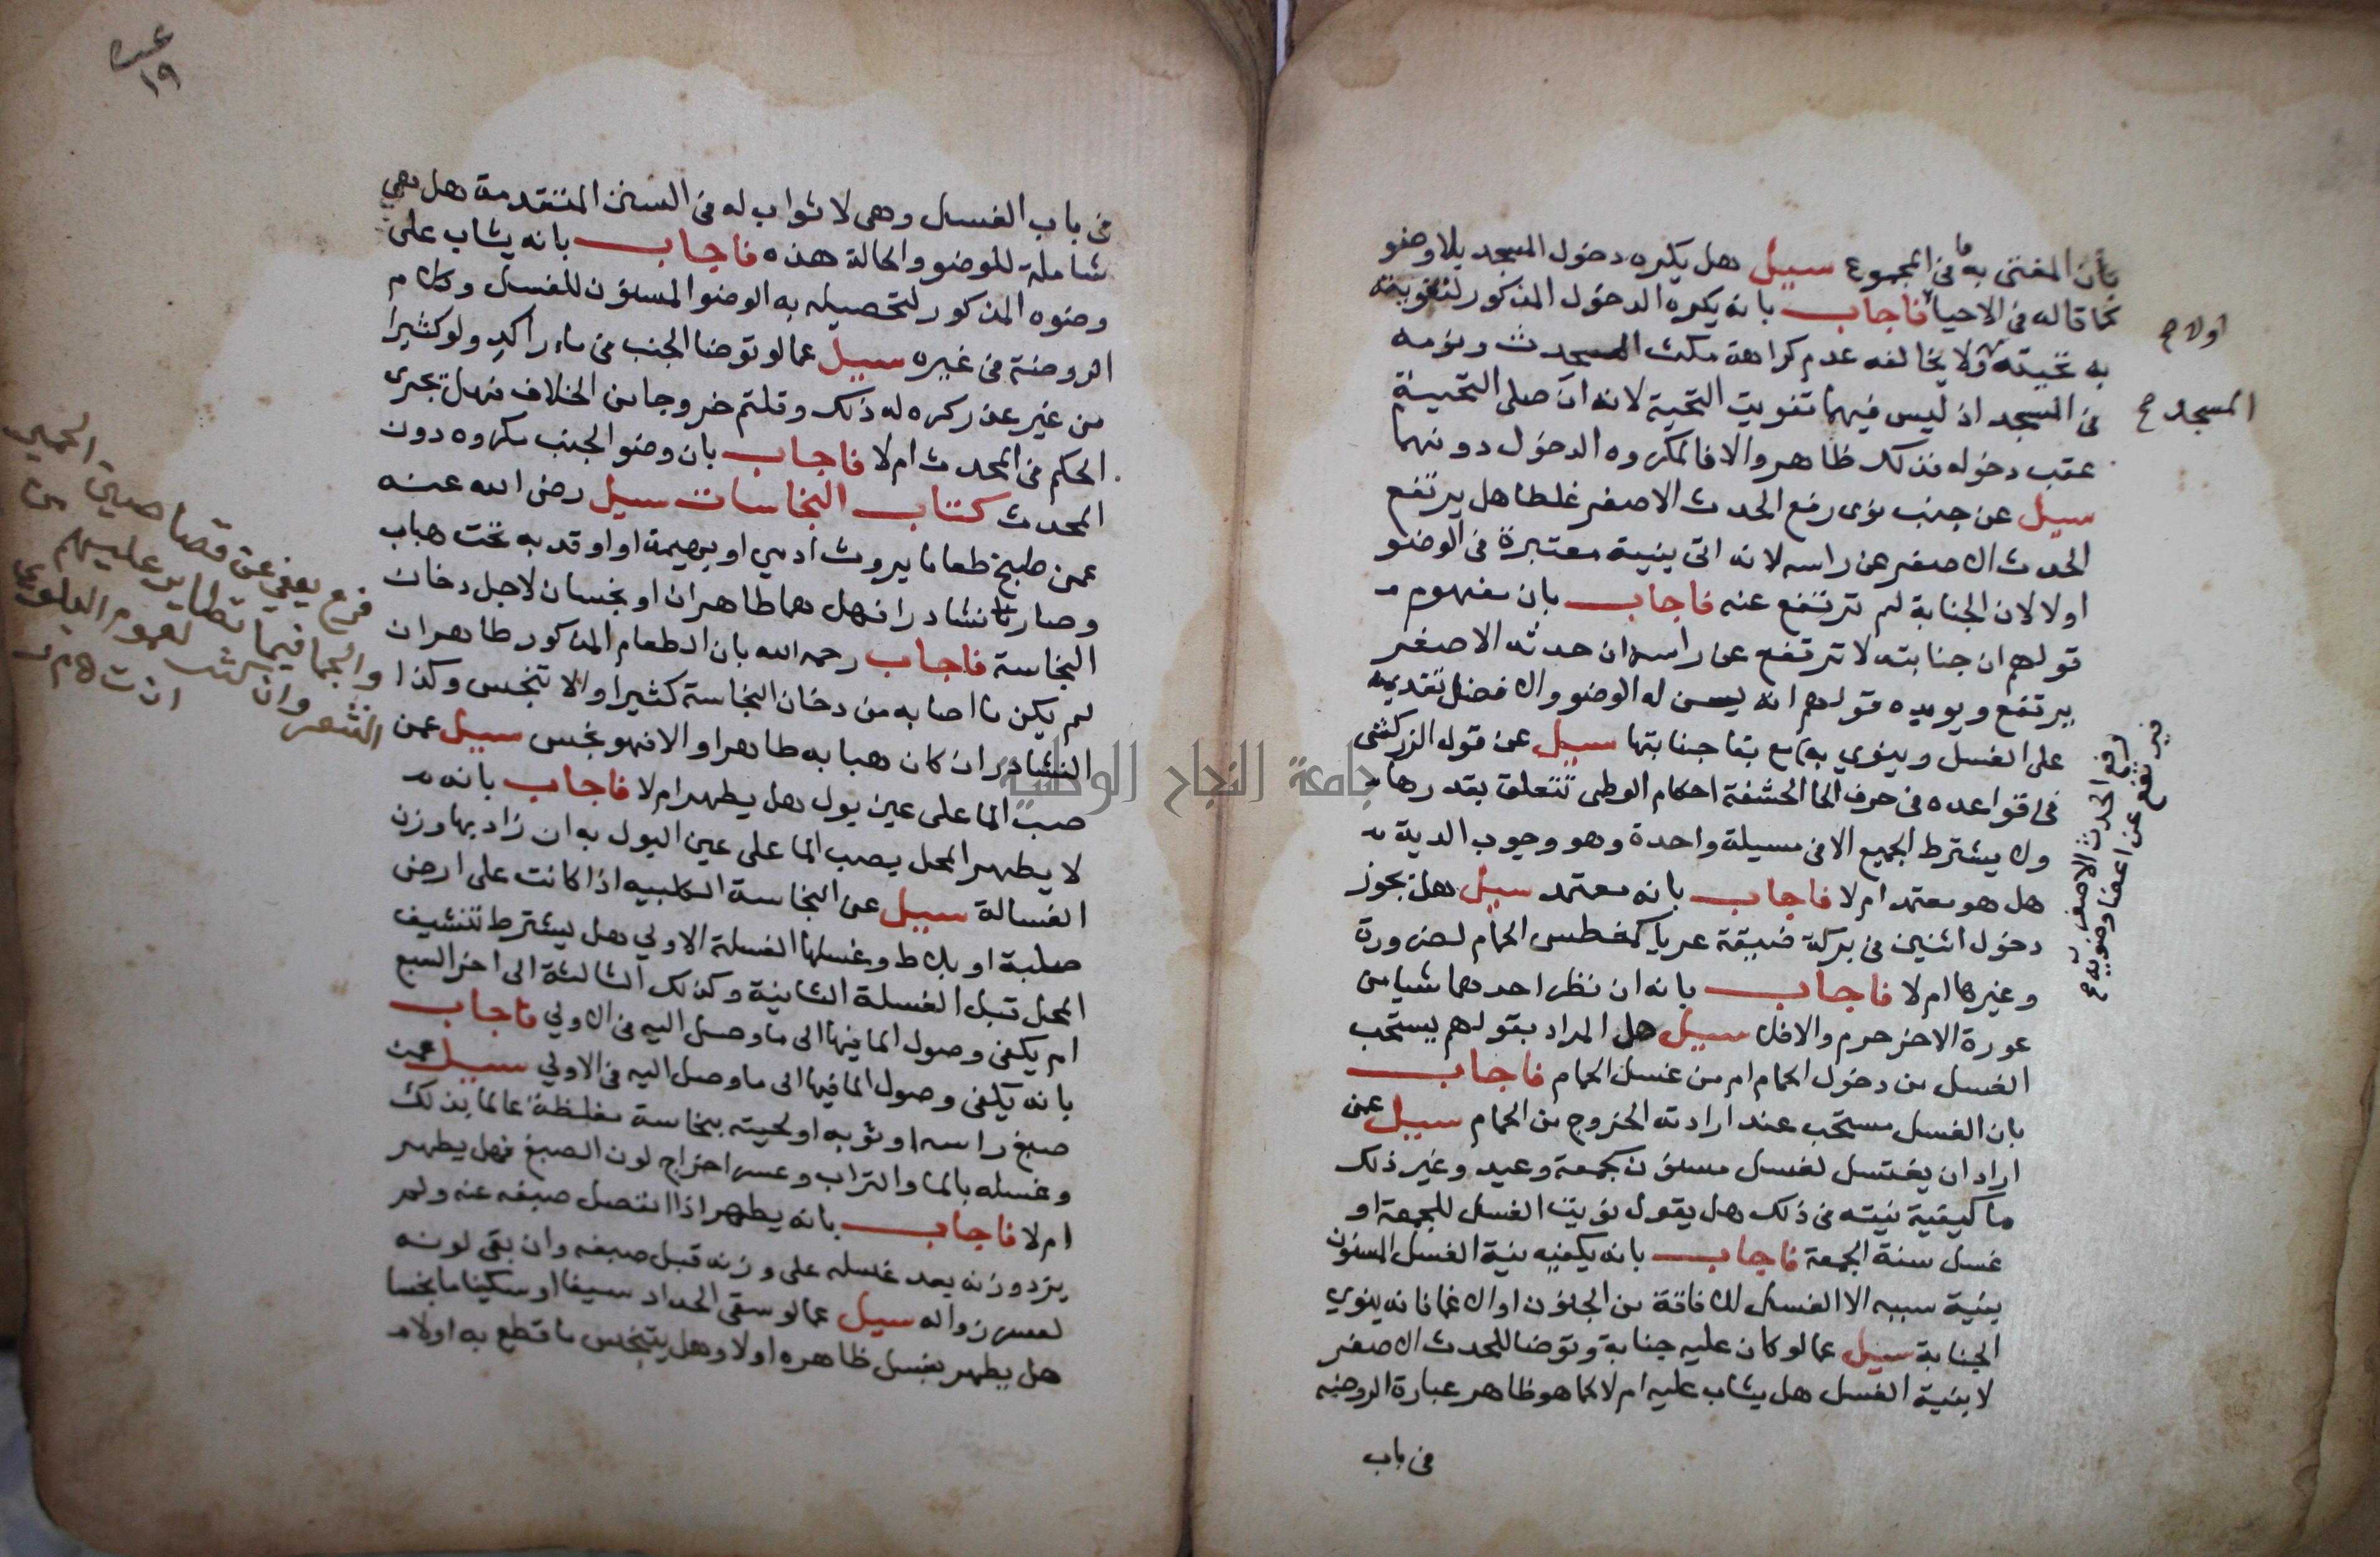 بأن المفتى به ما فى المجموع سيل هل يكره دخول المسجد بلا وضو
كما قاله فى الاحياء فاجاب بانه يكره الدخول المذكور لتفويته
به تحيته ولا يخالفه عدم كراهة مكث المحدث ونومه
فى المسجد اذ ليس فيهما تفويت التحية لانه ان صلى التحية
عقب دخوله فذلك ظاهر والا فالمكروه الدخول دونهما
سيل عن جنب نوى رفع الحدث الاصغر غلطا هل يرتفع
الحدث الاصغر عن راسه لانه اتى بنية معتبرة فى الوضو
اولا لان الجنابة لم ترتفع عنه فاجاب بان مفهوم
قولهم ان جنابته لا ترتفع عن راسه ان حدثه الاصغر
يرتفع ويويده قولهم انه يسن له الوضو والافضل تقديمه
على الغسل وينوي به مع بقا جنابتها سيل عن قول الزركشى
فى قواعده فى حرف الحا الحشفة احكام الوطى تتعلق بقدرها
ولا يشترط الجميع الا فى مسيلة واحدة وهو وجوب الدية
هل هو معتمد ام لا فاجاب بانه معتمد سيل هل يجوز
دخول اثنين فى بركة ضيقة عريا كمغطس الحمام لضرورة
وغيرها ام لا فاجاب بانه ان نظر احدهما شيا من
عورة الاخر حرم والا فلا سيل هل المراد بقولهم يستحب
الغسل من دخول الحمام ام من غسل الحمام فاجاب
بان الغسل مستحب عند ارادته الخروج من الحمام سيل عمن
اراد ان يغتسل لغسل مسنون كجمعة وعيد وغير ذلك
ما كيفية نيته فى ذلك هل يقول نويت الغسل للجمعة او
غسل سنة الجمعة فاجاب بانه يكفيه نية الغسل المسنون
بنية سببه الا الغسل للافاقة من الجنون او الاغما فانه ينوي
الجنابة سيل عما لو كان عليه جنابة وتوضا للحدث الاصغر
لا بنية الغسل هل يثاب عليه ام لا كما هو ظاهر عبارة الروضه
فى باب
اولا صح
المسجد صح
رفع الحدث الاصغر
يرتفع عن اعضا وضويه صح
١٩
فى باب الغسل وهى لا ثواب له فى السنن المتقدمة هل هي
شاملة للوضو والحالة هذه فاجاب بانه يثاب على
وضوه المذكور لتحصيله به الوضو المسنون للغسل وكلام
الروضة فى غيره سيل عما لو توضا الجنب فى ماء راكد ولو كثيرا
من غير عذر كره له ذلك وقلتم خروجا من الخلاف فهل تجرى
الحكم فى المحدث ام لا فاجاب بان وضو الجنب مكروه دون
المحدث كتاب النجاسات سيل رضى الله عنه
عمن طبخ طعاما بروث ادمي او بهيمة او اوقد به تحت هباب
وصار نشادرا فهل هما طاهران او نجسان لاجل دخان
النجاسة فاجاب رحمه الله بان الطعام المذكور طاهر ان
لم يكن ما اصابه من دخان النجاسة كثيرا والا تنجس وكذا
النشادر ان كان هبابه طاهرا والا فهو نجس سيل عمن
صب الما على عين بول هل يطهر ام لا فاجاب بانه
لا يطهر المحل بصب الما على عين البول به ان زاد بها وزن
الغسالة سيل عن النجاسة الكلبيه اذا كانت على ارض
صلبة او بلاط وغسلها الغسلة الاولى هل يشترط تنشيف
المحل قبل الغسلة الثانية وكذلك الثالثة الى اخر السبع
ام يكفى وصول الما فيها الى ما وصل اليه فى الاولى فاجاب
بانه يكفى وصول الما فيها الى ما وصل اليه فى الاولى سيل عمن
صبغ راسه او ثوبه او لحيته بنجاسة مغلظة عالما بذلك
وغسله بالما والتراب وعسر اخراج لون الصبغ فهل يطهر
ام لا فاجاب بانه يطهر اذا انفصل صبغه عنه ولم
يزد وزنه بعد غسله على وزنه قبل صبغه وان بقى لونه
لعسر زواله سيل عما لو سقى الحداد سيفا او سكينا ما نجسا
هل يطهر بغسل ظاهره اولا وهل يتنجس ما قطع به اولا
فرع يعفى عن
والجما فيما تطاير عليهم من
الشعر وان كثر لعموم البلوى
جامعة النجاح الوطنية